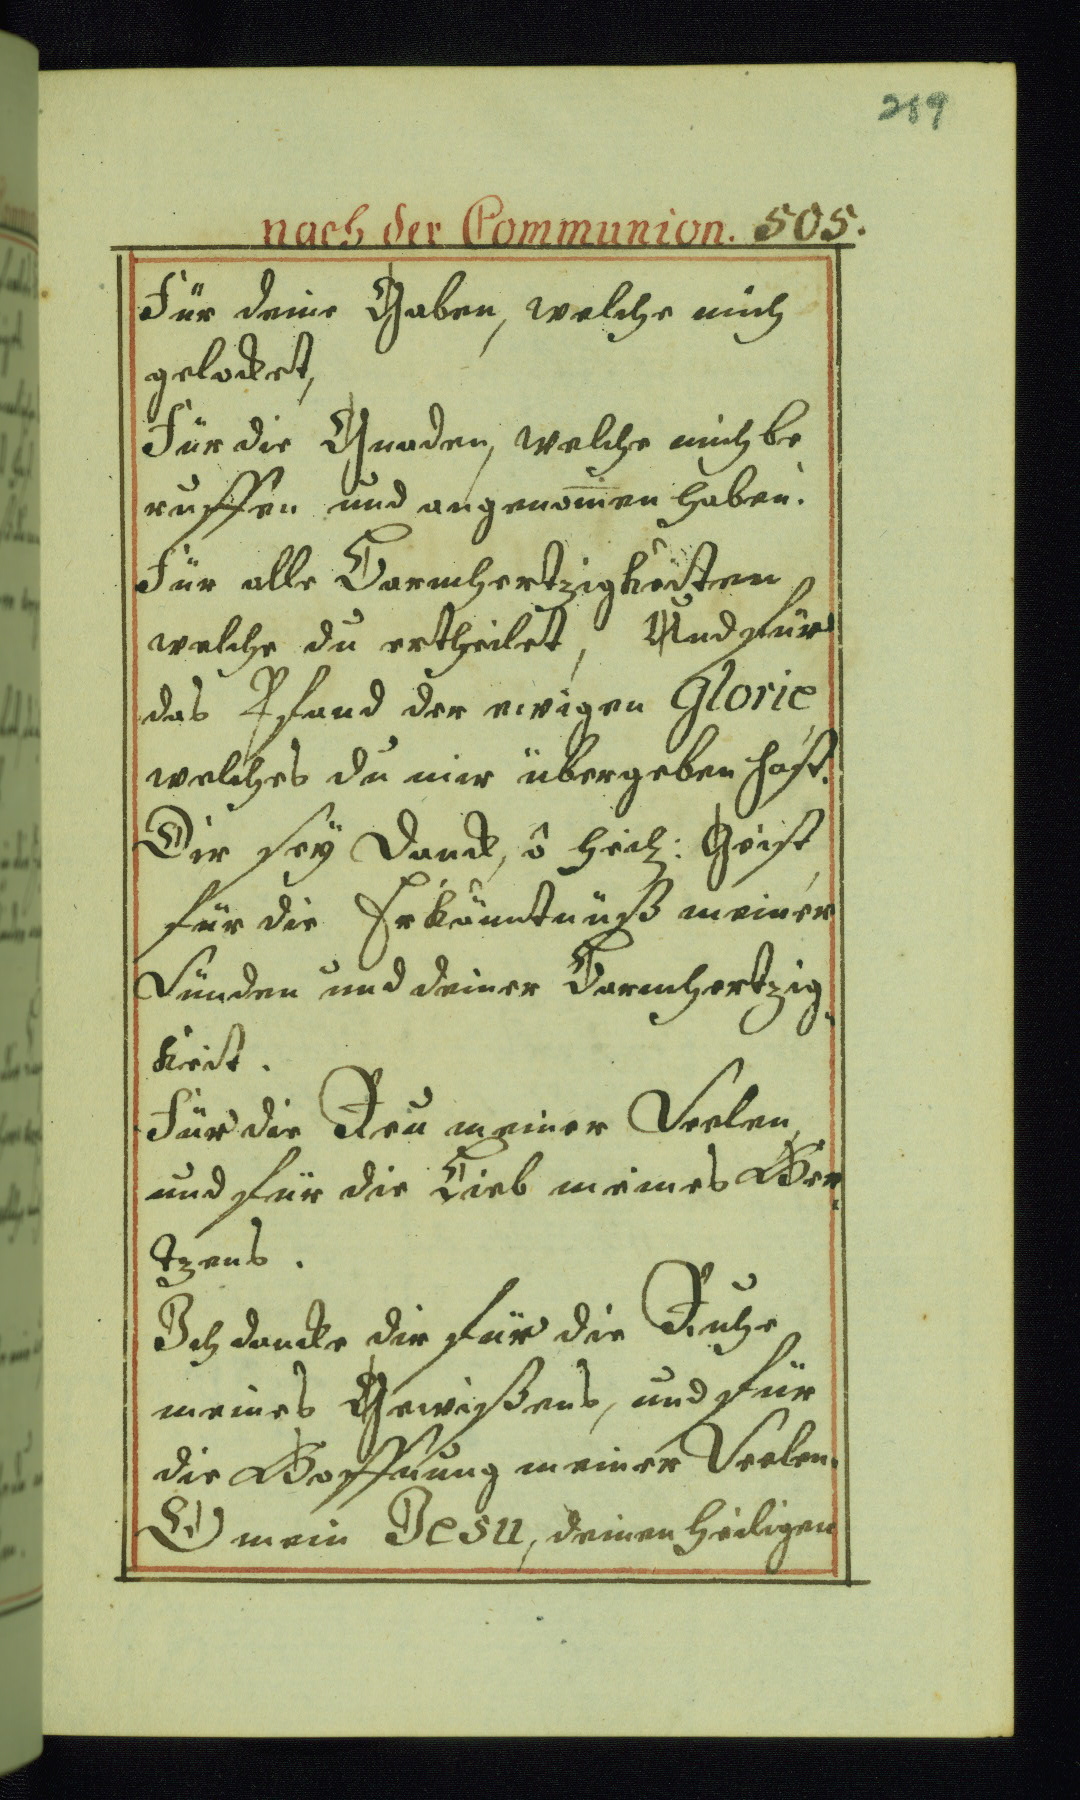 289
nach der Communion. 505.
Für deine Gaben, welche mich
gelocket,
Für die Gnaden, welche mich be
ruffen und angenom̅en haben.
Für alle Barmhertzigkeiten
welche du ertheilet, Und für
das Pfand der ewigen Glorie,
welches du mir übergeben hast.
Dir seÿ Danck, ô heil: Geist,
für die Erkänntnüß meiner
Sünden und deiner Barmhertzig
keit.
Für die Reu meiner Seelen,
und für die Lieb meines Her
tzens.
Ich dancke dir für die Ruhe
meines Gewißens, und für
die Hoffnung meiner Seelen.
O mein Jesu, deinen heiligen